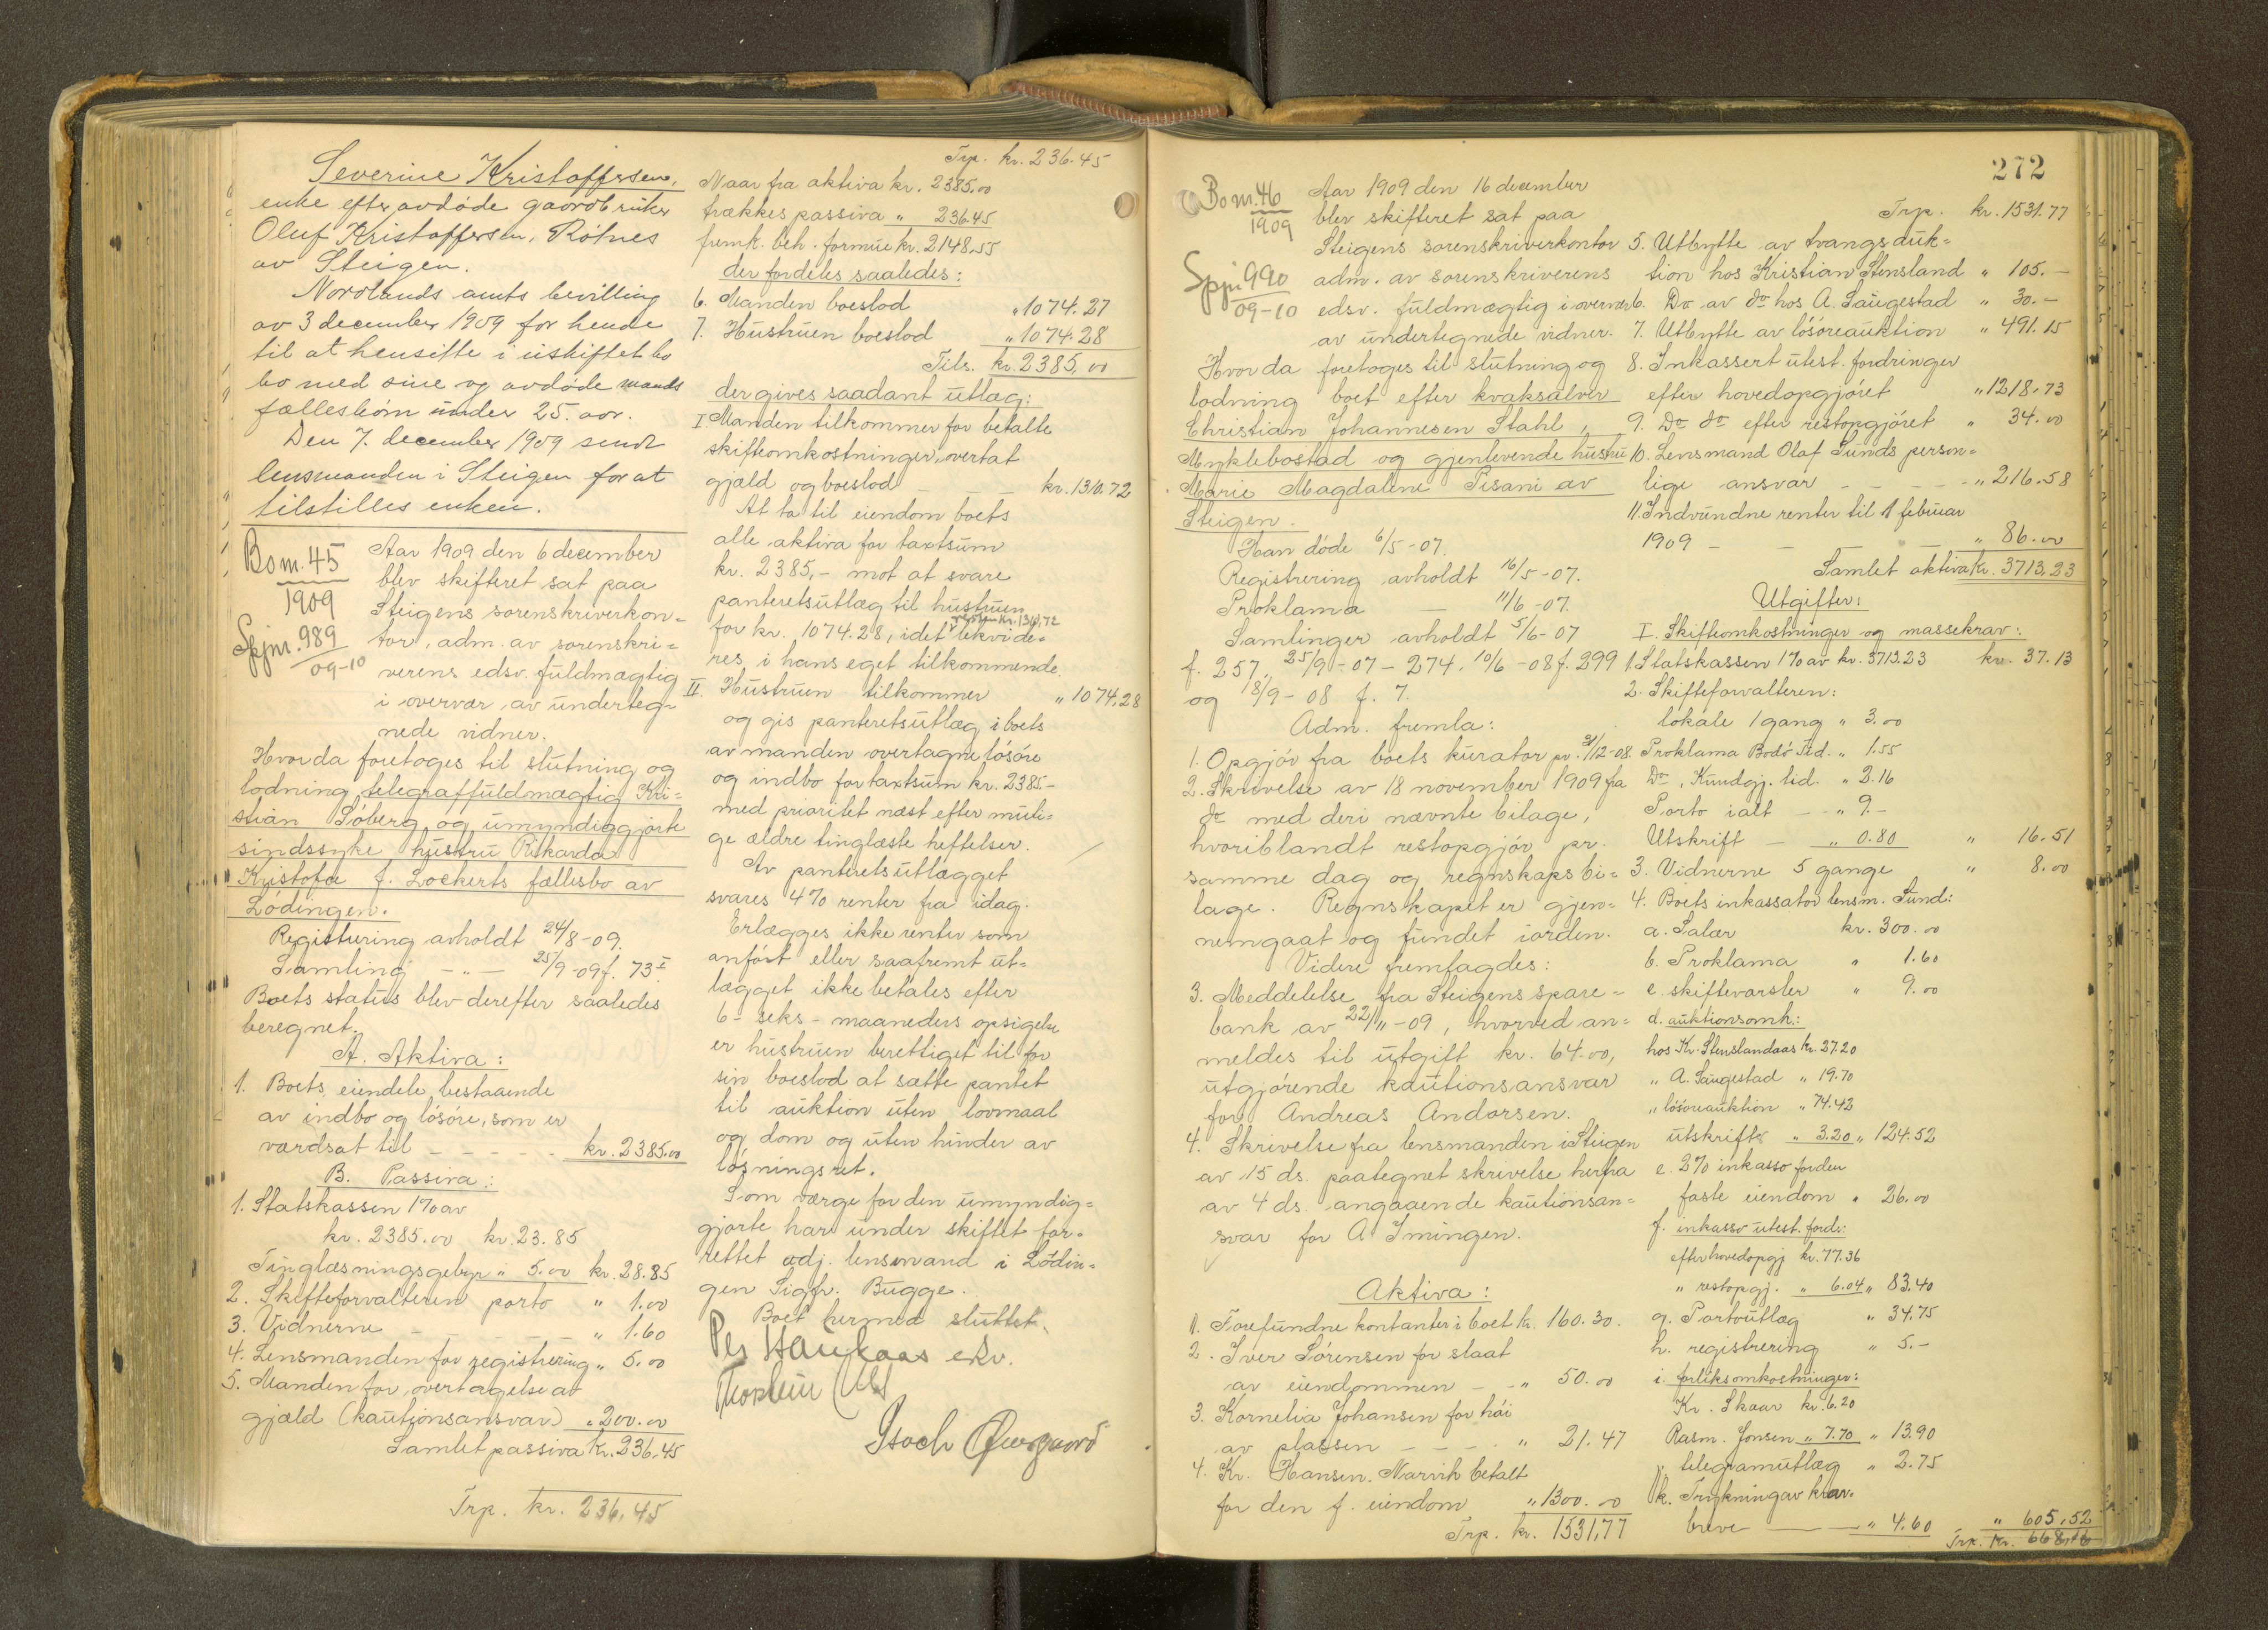 Severine Kristoffersen,
enke efter avdøde gaardbruker
Oluf Kristoffersen, Rötnes
av Steigen.
Nordlands amts bevilling
av 3 december 1909 for hende
til at hensitte i uskiftet bo
bo med sine og avdøde mands
fællesbörn under 25. aar.
Den 7. december 1909 sendt
lensmanden i Steigen for at
tilstilles enken.
Bom. 45
1909
Spjnr. 989
09-10
Aar 1909 den 6 december
blev skifteret sat paa
Steigens sorenskriverkon=
tor, adm. av sorenskri=
verens edsv. fuldmægtig
i overvær av underteg=
nede vidner.
Hvor da foretoges til slutning og
lodning telegraffuldmægtig Kri=
stian Söberg og umyndiggjorte
sindssyke hustru Rikarda
Kristofa f. Lockerts fællesbo av
Lödingen.
Registrering avholdt 24/8-09.
Samling -„- 25/9-09 f. 73 I
Boets status blev derefter saaledes
beregnet.
A. Aktiva:
1. Boets eiendele bestaaende
av indbo og lösöre, som er
værdsat til - - - - - kr. 2385.00
B. Passiva:
1. Statskassen 1% av
kr. 2385.00 kr. 23.85
Tinglæsningsgebyr „ 5.00 kr. 28.85
2. Skifteforvalteren porto „ 1.00
3. Vidnerne - - - - „ 1.60
4. Lensmanden for registrering „ 5.00
5. Manden for overtagelse av
gjæld (kautionsansvar) „ 200.00
Samlet passiva kr. 236.45
Trp. kr. 236.45
Trp. kr. 236.45
Naar fra aktiva kr. 2385.00
trækkes passiva „ 236.45
fremk. beh. formue kr. 2148.55
der fordeles saaledes:
6. Manden boeslod „ 1074.27
7. Hustruen boeslod „ 1074.28
Tils. kr. 2385.00
der gives saadant utlæg:
I Manden tilkommer for betalte
skifteomkostninger, overtat
gjæld og boeslod - - - kr. 1310.72
At ta til eiendom boets
alle aktiva for taxtsum
kr. 2385,- mot at svare
panteretsutlæg til hustruen
for kr. 1074.28, idet resten kr. 1310,72 likvide=
res i hans eget tilkommende.
II. Hustruen tilkommer „ 1074.28
og gis panteretsutlæg i boets
av manden overtagne lösöre
og indbo for taxtsum kr. 2385.-
med prioritet næst efter muli=
ge ældre tinglæste heftelser.
Av panteretsutlægget
svares 4% renter fra idag.
Erlægges ikke renter som
anfört eller saafremt ut=
lægget ikke betales efter
6 - seks - maaneders opsigelse
er hustruen berettiget til for
sin boeslod at sætte pantet
til auktion uten lovmaal
og dom og uten hinder av
lösningsret.
Som værge for den umyndig=
gjorte har under skiftet for=
rettet adj. lensmand i Lödin=
gen Sigfr. Bugge.
Boet hermed sluttet.
272
Bom. 46
1909
Spjnr. 990
09-10
Aar 1909 den 16 december
blev skifteret sat paa
Steigens sorenskriverkontor
adm. av sorenskriverens
edsv. fuldmægtig i overvær
av undertegnede vidner.
Hvor da foretoges til slutning og
lodning boet efter kvaksalver
Christian Johannesen Stahl,
Myklebostad og gjenlevende hustru
Marie Magdalene Pisani av
Steigen.
Han döde 6/5-07.
Registrering avholdt 16/5-07.
Proklama - 11/6-07.
Samlinger avholdt 5/6-07
f. 257, 25/9-07 - 274, 10/6-08 f. 299
og 18/9-08 f. 7.
Adm. fremla:
1. Opgjör fra boets kurator pr. 31/12-08.
2. Skrivelse av 18 november 1909 fra
do med deri nævnte bilage,
hvoriblandt restopgjör pr.
samme dag og regnskapsbi=
lage. Regnskapet er gjen=
nemgaat og fundet iorden.
Videre fremlagdes:
3. Meddelelse fra Steigens spare=
bank av 22/11-09, hvorved an=
meldes til utgift kr. 64.00,
utgjörende kautionsansvar
for Andreas Andorsen.
4. Skrivelse fra lensmanden i Steigen
av 15 ds. paategnet skrivelse herfra
av 4 ds. angaaende kautionsan=
svar for A Imingen.
Aktiva:
1. Forefundne kontanter i boet kr. 160.30.
2. Iver Sörensen for slaat
av eiendommen - - „ 50.00
3. Kornelia Johansen for höi
av plassen - - - „ 21.47
4. Kr. Hansen. Narvik betalt
for den f. eiendom „ 1300.00
Trp. kr. 1531,77
Trp. kr. 1531.77
5. Utbytte av tvangsauk=
tion hos Kristian Stensland „ 105.-
6. Do av do hos A. Saugestad „ 30.-
7. Utbytte av lösöreauktion „ 491.15
8. Inkassert utest. fordringer
efter hovedopgjöret „ 1218.73
9. Do do efter restopgjöret „ 34.00
10. Lensmand Olaf Sunds person=
lige ansvar - - - - „ 216.58
11. Indvundne renter til 1 februar
1909 - - - „ 86.00
Samlet aktiva kr. 3713,23
Utgifter:
I. Skifteomkostninger og massekrav:
1. Statskassen 1% av kr. 3713.23 kr. 37.13
2. Skifteforvalteren:
lokale 1 gang „ 3.00
Proklama Bodö Tid. „ 1.55
Do, Kundgj. tid. „ 2.16
Porto ialt - - „ 9.-
Utskrift - „ 0.80 „ 16.51
3. Vidnerne 5 gange „ 8.00
4. Boets inkassator lensm. Sund:
a. Salær kr. 300.00
b. Proklama „ 1.60
c. skiftevarsler „ 9.00
d. auktionsomk:
hos Kr. Stenslandaas kr. 27.20
„ A. Saugestad „ 19.70
„ lösöreauktion „ 74.42
utskrifts „ 3.20 „ 124.52
e. 2% inkasso for den
faste eiendom „ 26.00
f. inkasso utest. ford.:
efter hovedopgj kr. 77.36
„ restopgj. „ 6.04 „ 83.40
g. Portoutlæg „ 34.75
h. registrering „ 5.-
i. forliksomkostninger:
Kr. Skaar kr. 6.20
Rasm. Jonsen „ 7.70 „ 13.90
j. telegramutlæg „ 2.75
k. Trykning av krav=
breve - - „ 4.60 „ 605,52
Trp. kr.